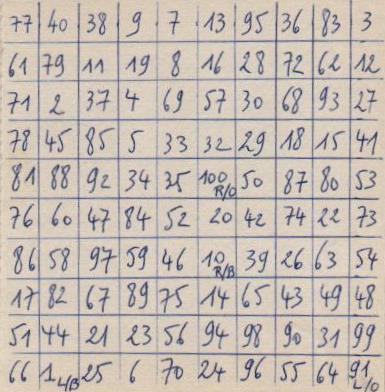 77 40 38 9 7 13 95 36 83 3
61 79 11 19 8 16 28 72 62 12
71 2 37 4 69 57 30 68 93 27
78 45 85 5 33 32 29 18 15 41
81 88 92 34 35 100 R/O 50 87 80 53
76 60 47 84 52 20 42 74 22 73
86 58 97 59 46 10 R/B 39 26 63 54
17 82 67 89 75 14 65 43 49 48
51 44 21 23 56 94 98 90 31 99
66 1 L/B 25 6 70 24 96 55 64 91 L/O